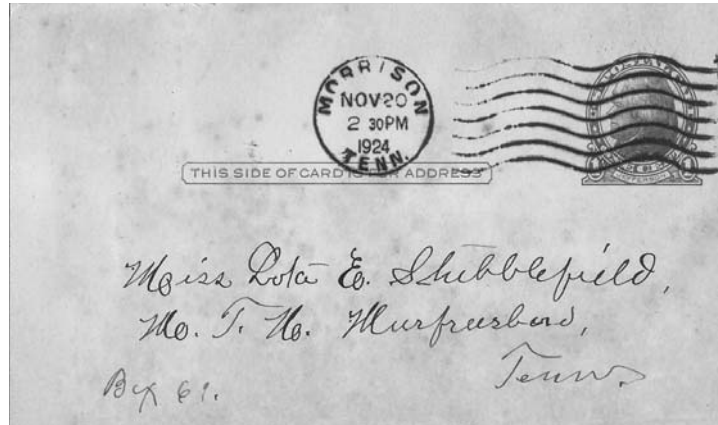 MORRISON
NOV 20
2 30 PM
1924
TENN.
THIS SIDE OF CARD IS FOR ADDRESS
JEFFERSON
Miss Lota E. Stubblefield,
Mo. T. No. Murfreesboro,
Tenn.
Box 61.